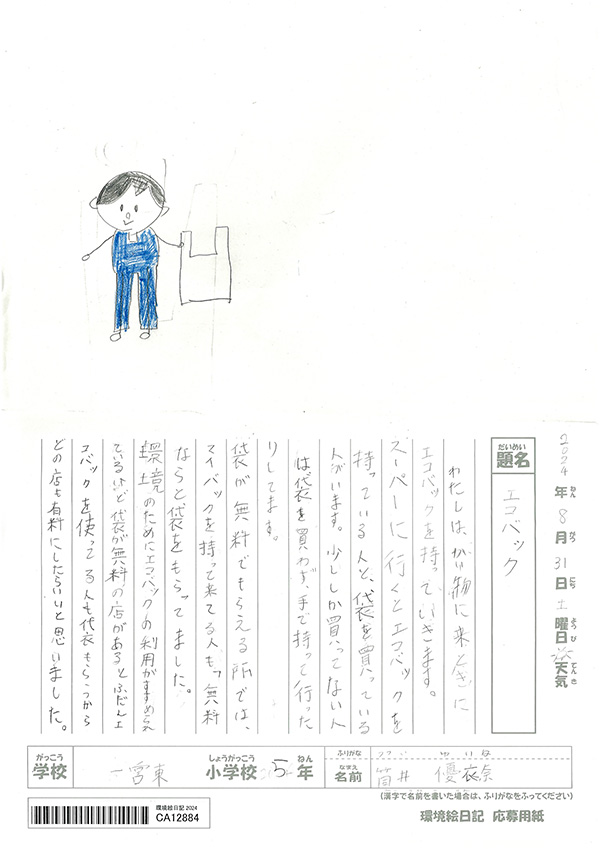 2024年8月31日土曜日 天気
ねん がつ にち ようび てんき
だいめい
題名
エコバック
わたしは、かい物に来ときに
エコバックを持っていきます。
スーパーに行くとエコバックを
持っている人と、袋を買っている
人がいます。少ししか買ってない人
は袋を買わず、手で持って行った
りしてます。
袋が無料でもらえる所では、
マイバックを持って来てる人も、「無料
ならと袋をもらってました。
環境のためにエコバックの利用がすすめられ
ているけど袋が無料の店があるとふだんエ
コバックを使ってる人も代衣もらうから
どの店も有料にしたらいいと思いました。
がっこう しょうがっこう ねん
学校 一宮東 小学校 5年
ふりがな つつい ゆいな
なまえ
名前 筒井 優衣奈
(漢字で名前を書いた場合は、ふりがなをふってください)
環境絵日記 2024
CA12884
環境絵日記 応募用紙